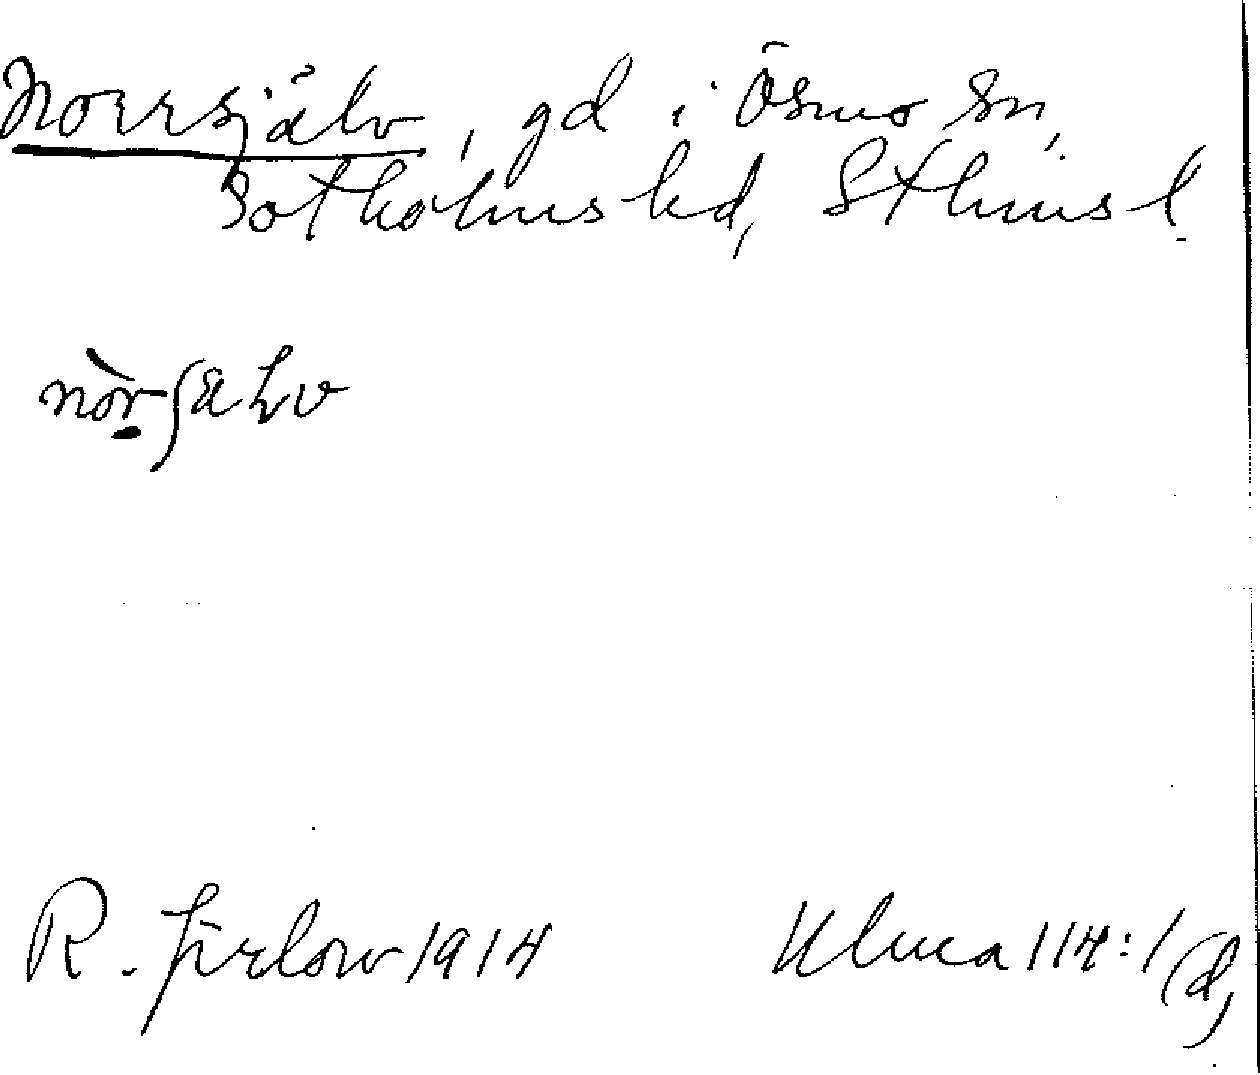 Norrsjälv, gd i Ösmo sn,
Sotholms hd, Sthms l.
nòrʃälv
R. Jirlow 1914
Uluca 114:1 (d)